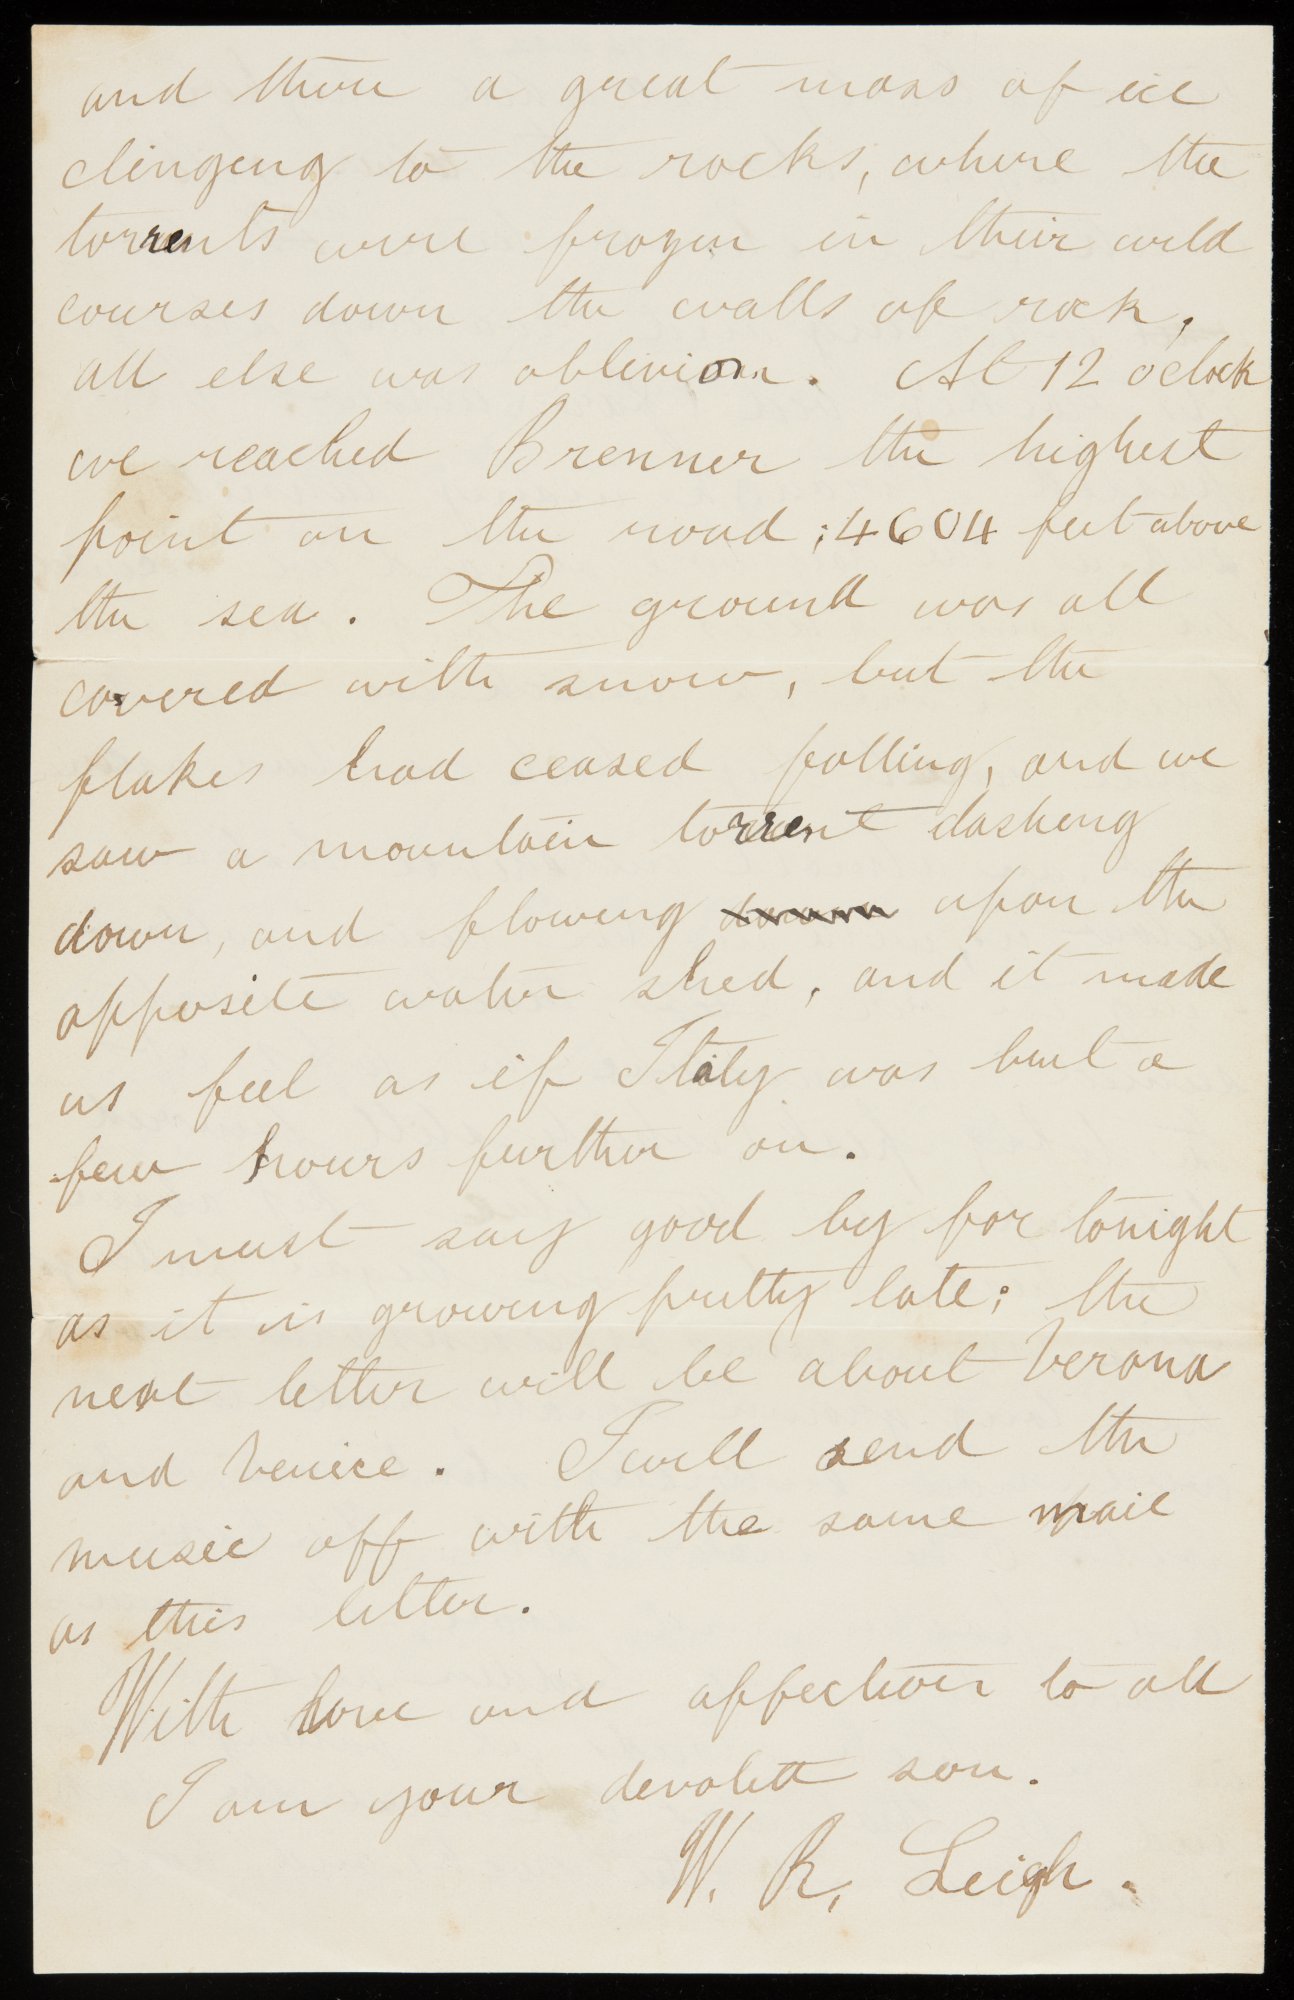 and there a great mass of ice
clinging to the rocks, where the
torrents were frozen in their wild
courses down the walls of rock,
all else was oblivion. At 12 o'clock
we reached Brenner the highest
point on the road; 4604 feet above
the sea. The ground was all
covered with snow, but the
flakes had ceased falling, and we
saw a mountain torrent dashing
down, and flowing down upon the
opposite water shed, and it made
us feel as if Italy was but a
few hours further on.
I must say good by for tonight
as it is growing pretty late; the
next letter will be about Verona
and Venice. I will send the
music off with the same mail
as this letter.
With love and affection to all
I am your devoted son.
W. R. Leigh.